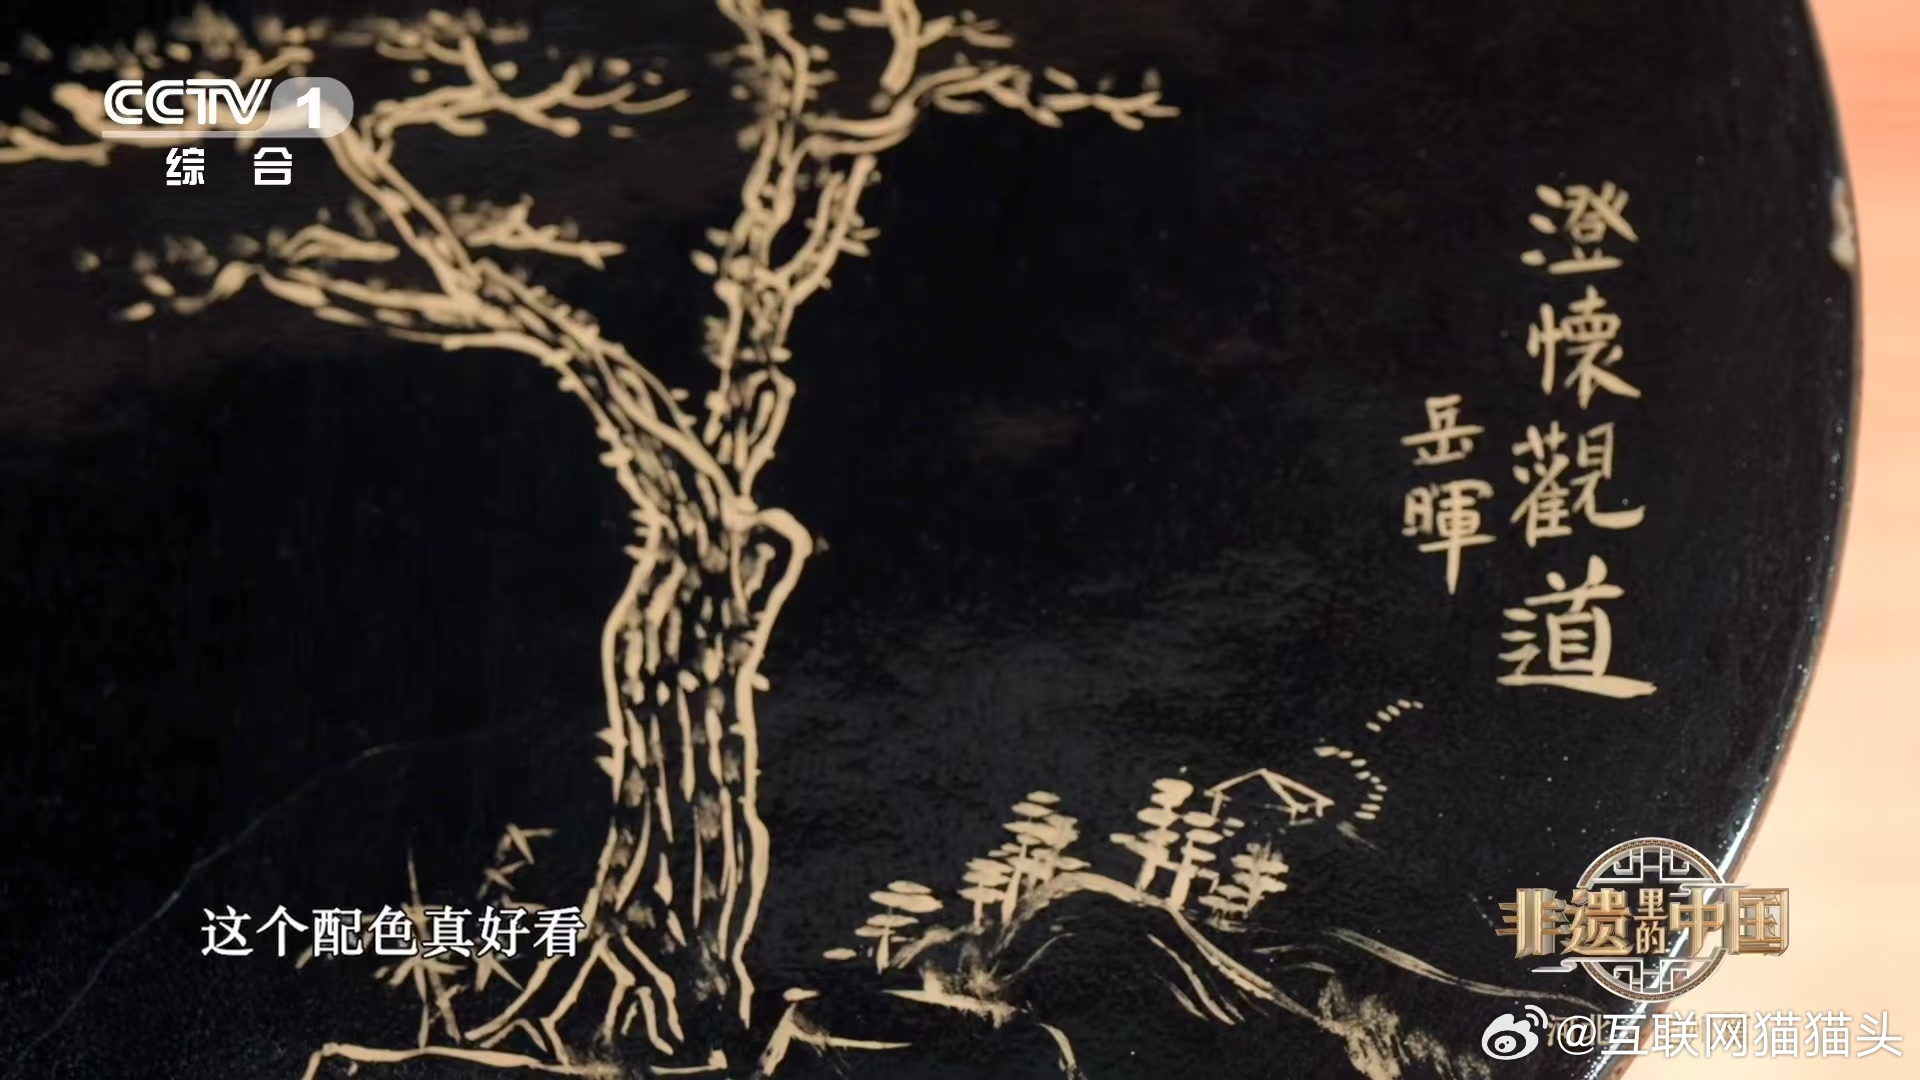 CCTV 1
综合
澄懷觀道
岳暉
这个配色真好看
非遗里的中国
@互联网猫猫头